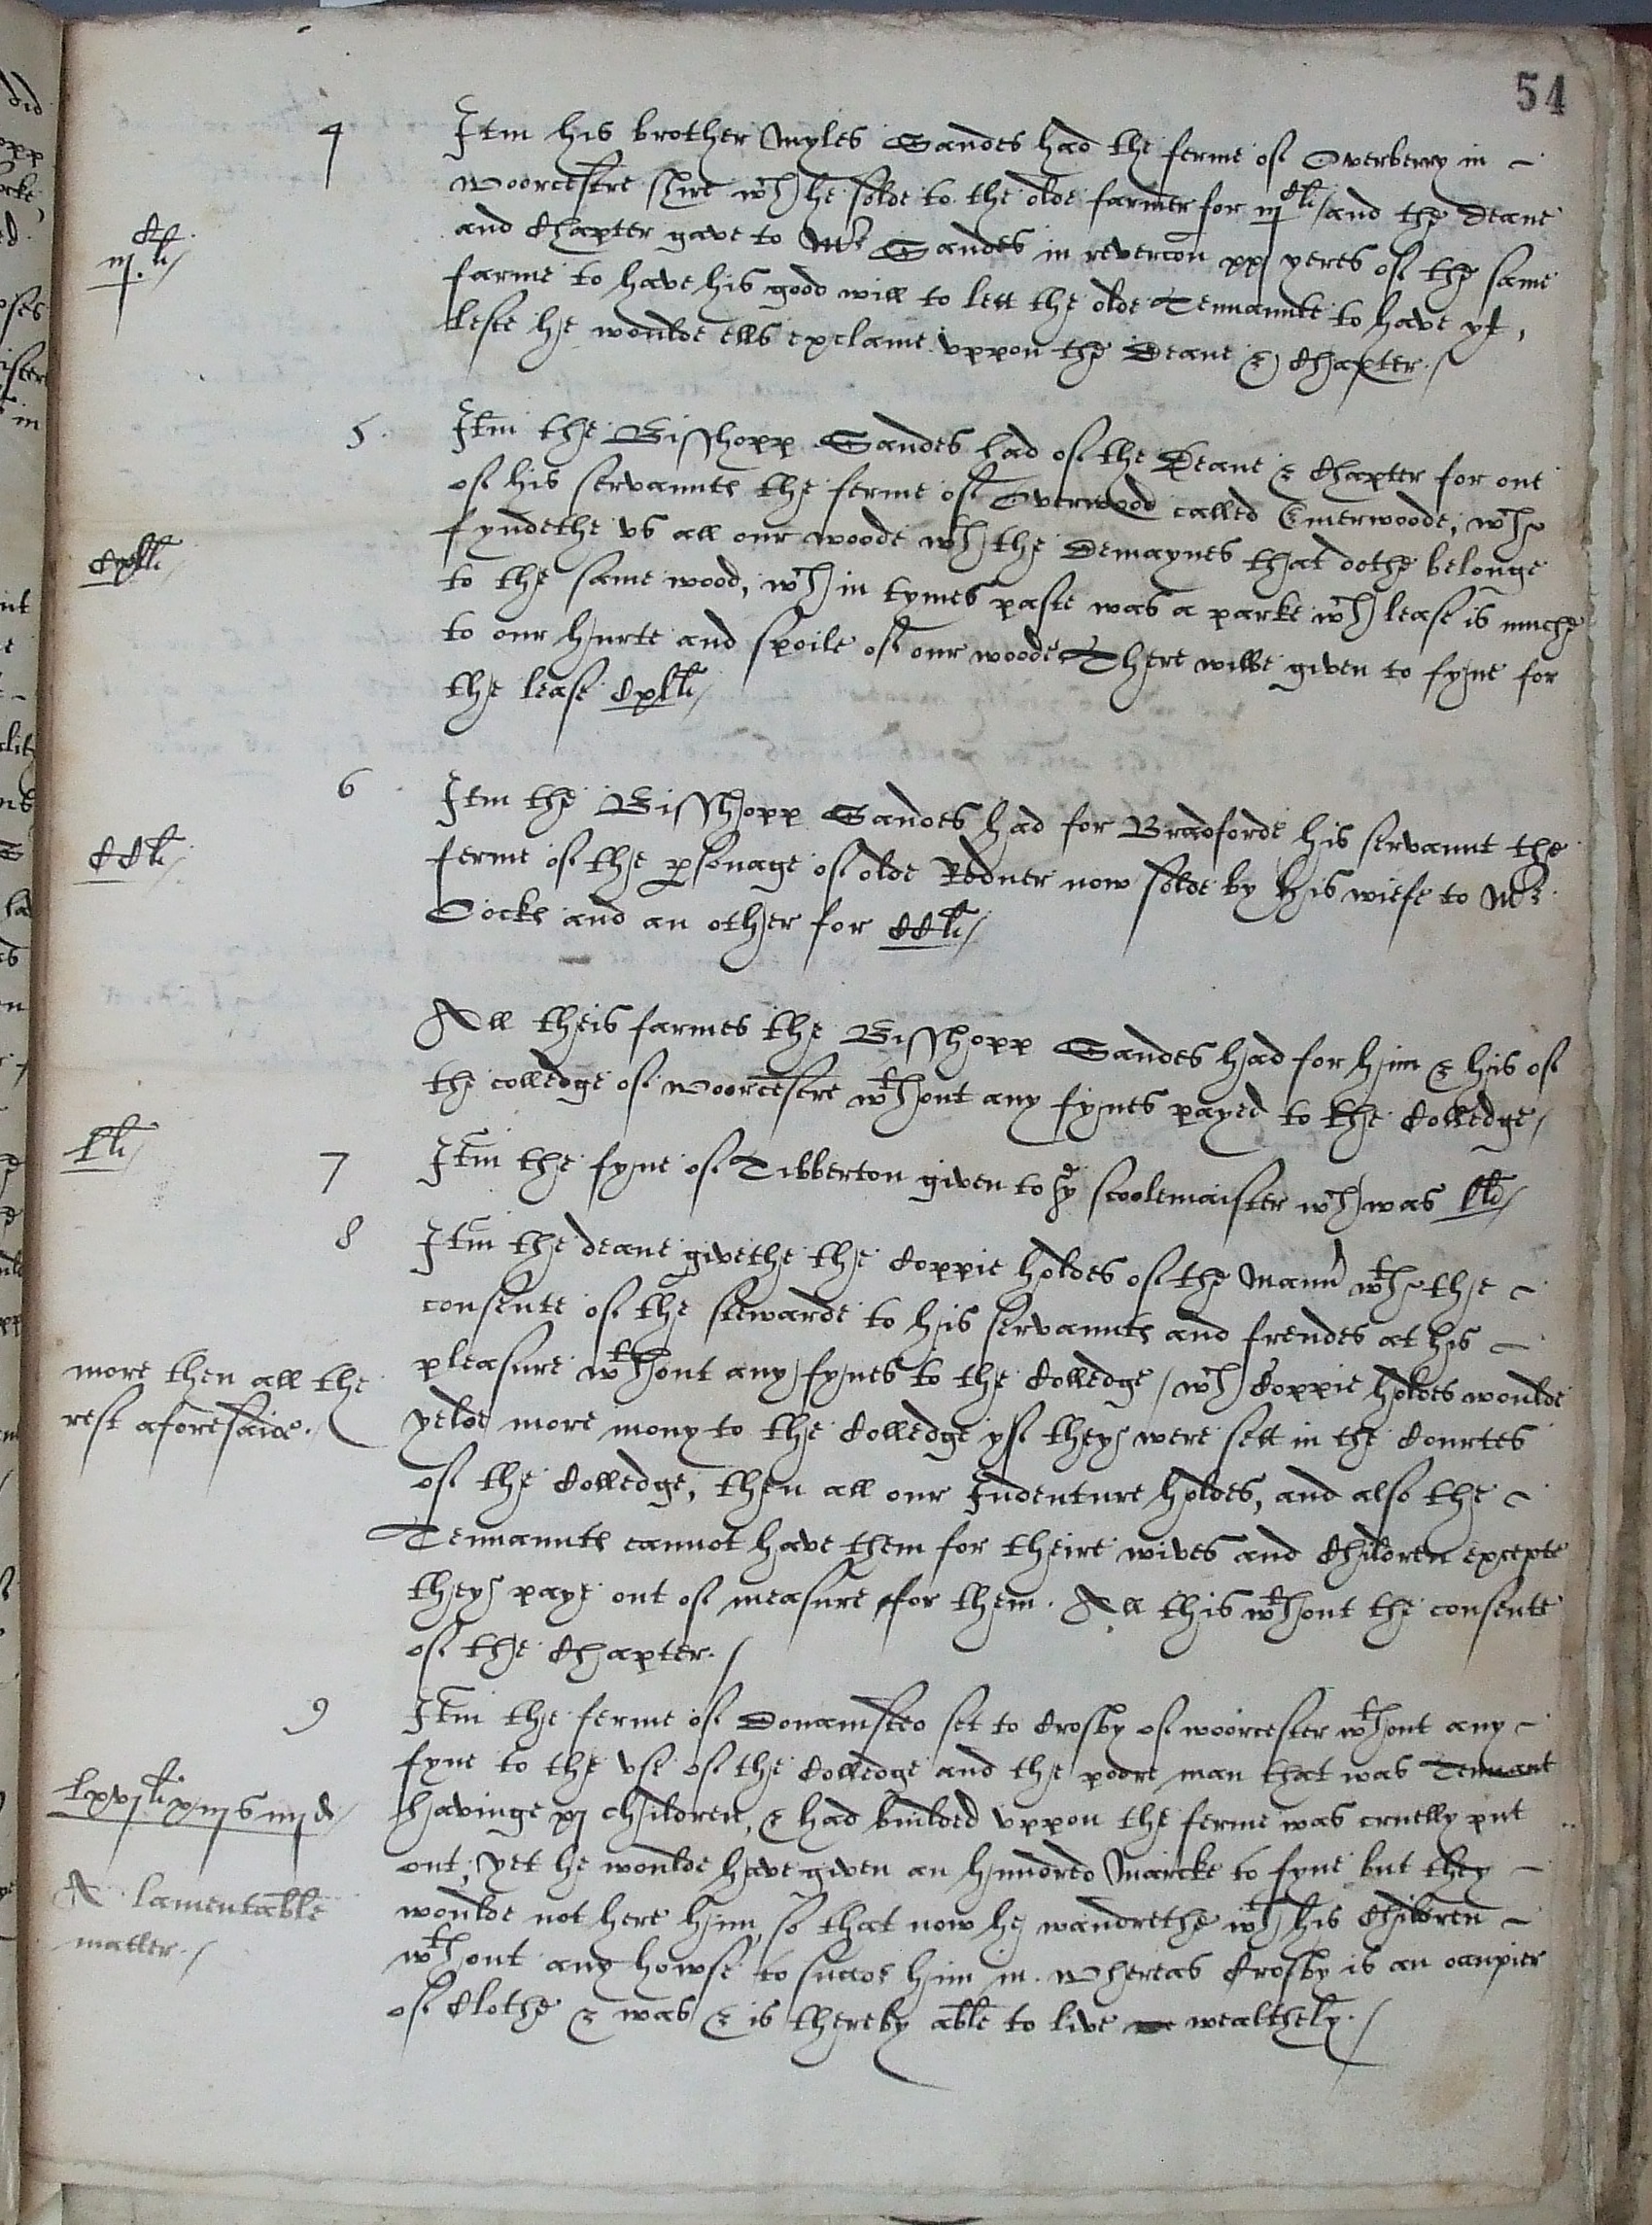 54
4 Itm his brother Myles Sandes had the ferme of Overberry in
Woorcestre shire wch he solde to the olde farmer for iijC li/ and the Deane
and Chapter gave to Mr Sandes in revercon xxj yeres of the same
iijC li/
farme to have his good will to lett the olde Tennaunte to have yt,
leste he woulde ells exclame uppon the Deane & Chapter./
5. Itm the Bisshopp Sandes had of the Deane & Chapter for one
of his servauntes the ferme of Overwood called Emerwoode, wch
fyndethe us all our woode wth the Demaynes that dothe belonge
Cxl li/
to the same wood, wch in tymes paste was a parke wch lease is muche
to our hurte and spoile of our woode There wilbe given to fyne for
the lease Cxl li/
6 Itm the Bisshopp Sandes had for Bradforde his servaunt the
CC li/
ferme of the psonage of olde Redner now solde by his wiefe to Mr
Cocks and an other for CC li/
All theis farmes the Bisshopp Sandes had for him & his of
the colledge of Woorcestre wthout any fynes payed to the Colledge/
l li/
7 Itm the fyne of Tibberton given to ye scoolemaister wch was l li/
8 Itm the deane givethe the Coppie holdes of the Mannor wth the
consente of the stewarde to his servauntes and frendes at his
pleasure wthout any fynes to the Colledge/ wch Coppie holdes woulde
more then all the
rest aforesaide./
yelde more mony to the Colledge yf they were sett in the Courtes
of the Colledge, then all our Indenture holdes, and also the
Tennauntes cannot have them for theire wives and Children excepte
they paye out of measure for them. All this wthout the consente
of the Chapter./
9 Itm the ferme of Donamsted set to Crosby of woorcester wthout any
fyne to the use of the Colledge and the poore man that was Tennant
lxvj li xiijs iiijd/
havinge xj children, & had builded uppon the ferme was cruelly put
out, yet he woulde have given an hundred Marcke to fyne but they
A lamentable
matter./
woulde not here him, so that now he wandrethe wth his Children
wthout any howse to succor him in. Whereas Crosby is an occupier
of Clothe & was & is thereby able to live wealthely./